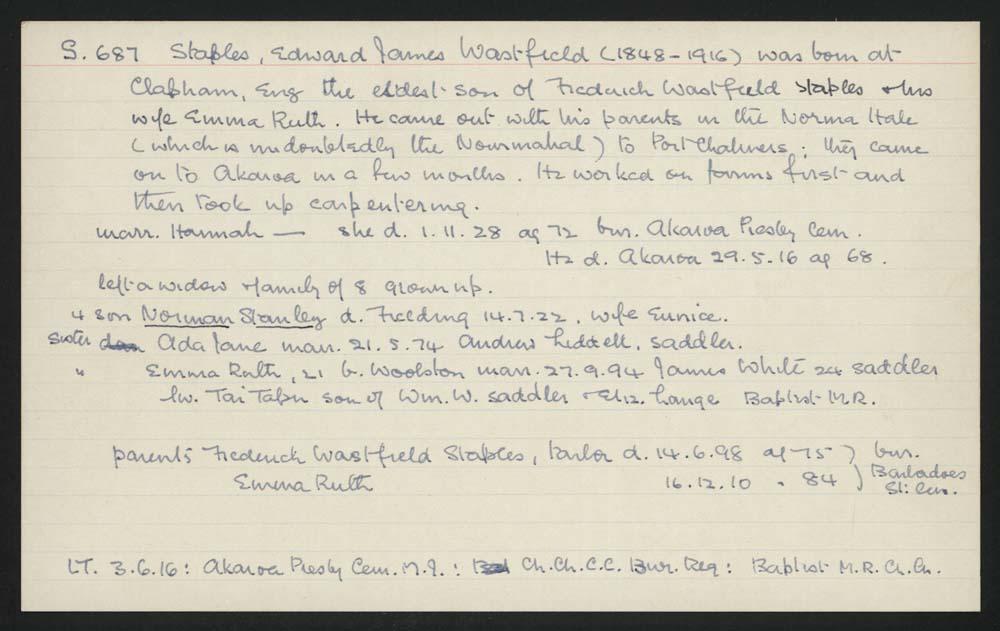 S. 687 Staples, Edward James Wastfield (1848-1916) was born at
Clapham, Eng the eldest son of Frederick Wastfield Staples & his
wife Emma Ruth. He came out with his parents in the Norma Hale
(which is undoubtedly the Nourmahal) to Port Chalmers; they came
on to Akaroa in a few months. He worked on farms first and
then took up carpentering.
marr. Hannah — she d. 1.11.28 ag 72 bur. Akaroa Presby Cem.
He d. Akaroa 29.5.16 ag 68.
left a widow & family of 8 grown up.
4 son Norman Stanley d. Feilding 14.7.22, wife Eunice.
sister Ada Jane marr. 21.5.74 Andrew Liddell, saddler.
" Emma Ruth, 21 b. Woolston marr. 27.9.94 James White 24 saddler
lw. Tai Tapu son of Wm. W. saddler & Eliz. Baptist M.R.
parents Frederick Wastfield Staples, tailor d. 14.6.98 ag 75 ) bur.
Emma Ruth 16.12.10 " 84 ) Barbadoes
St: Cem.
LT. 3.6.16: Akaroa Presby Cem. M.I.: Ch.Ch.C.C. Bur. Reg: Baptist M.R. Ch.Ch.